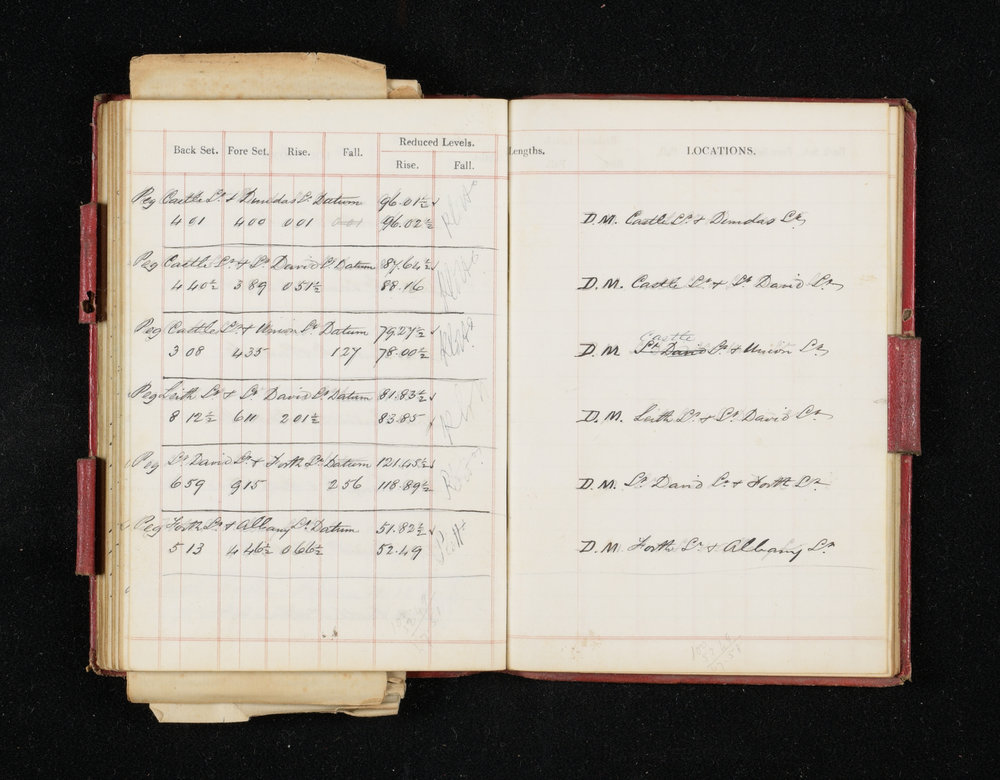 Back Set. Fore Set. Rise. Fall. Reduced Levels. Rise. Fall.
Peg Castle St & Dundas St Datum 96.01½ ✓
4 01 4 00 0 01 0.01 96.02½
Peg Castle St & St David St Datum 87.64½ ✓
4 40½ 3 89 0 51½ 88.16
Peg Castle St & Union St Datum 79.27½ ✓
3 08 4 35 1 27 78.00½
Peg Leith St & St David St Datum 81.83½ ✓
8 12½ 6 11 2 01½ 83.85
Peg St David St & Forth St Datum 121.45½ ✓
6 59 9 15 2 56 118.89½
Peg Forth St & Albany St Datum 51.82½ ✓
5 13 4 46½ 0 66½ 52.49
Lengths. LOCATIONS.
D.M. Castle St & Dundas St
D.M. Castle St & St David St
Castle
D.M. St David St & Union St
D.M. Leith St & St David St
D.M. St David St & Forth St
D.M. Forth St & Albany St